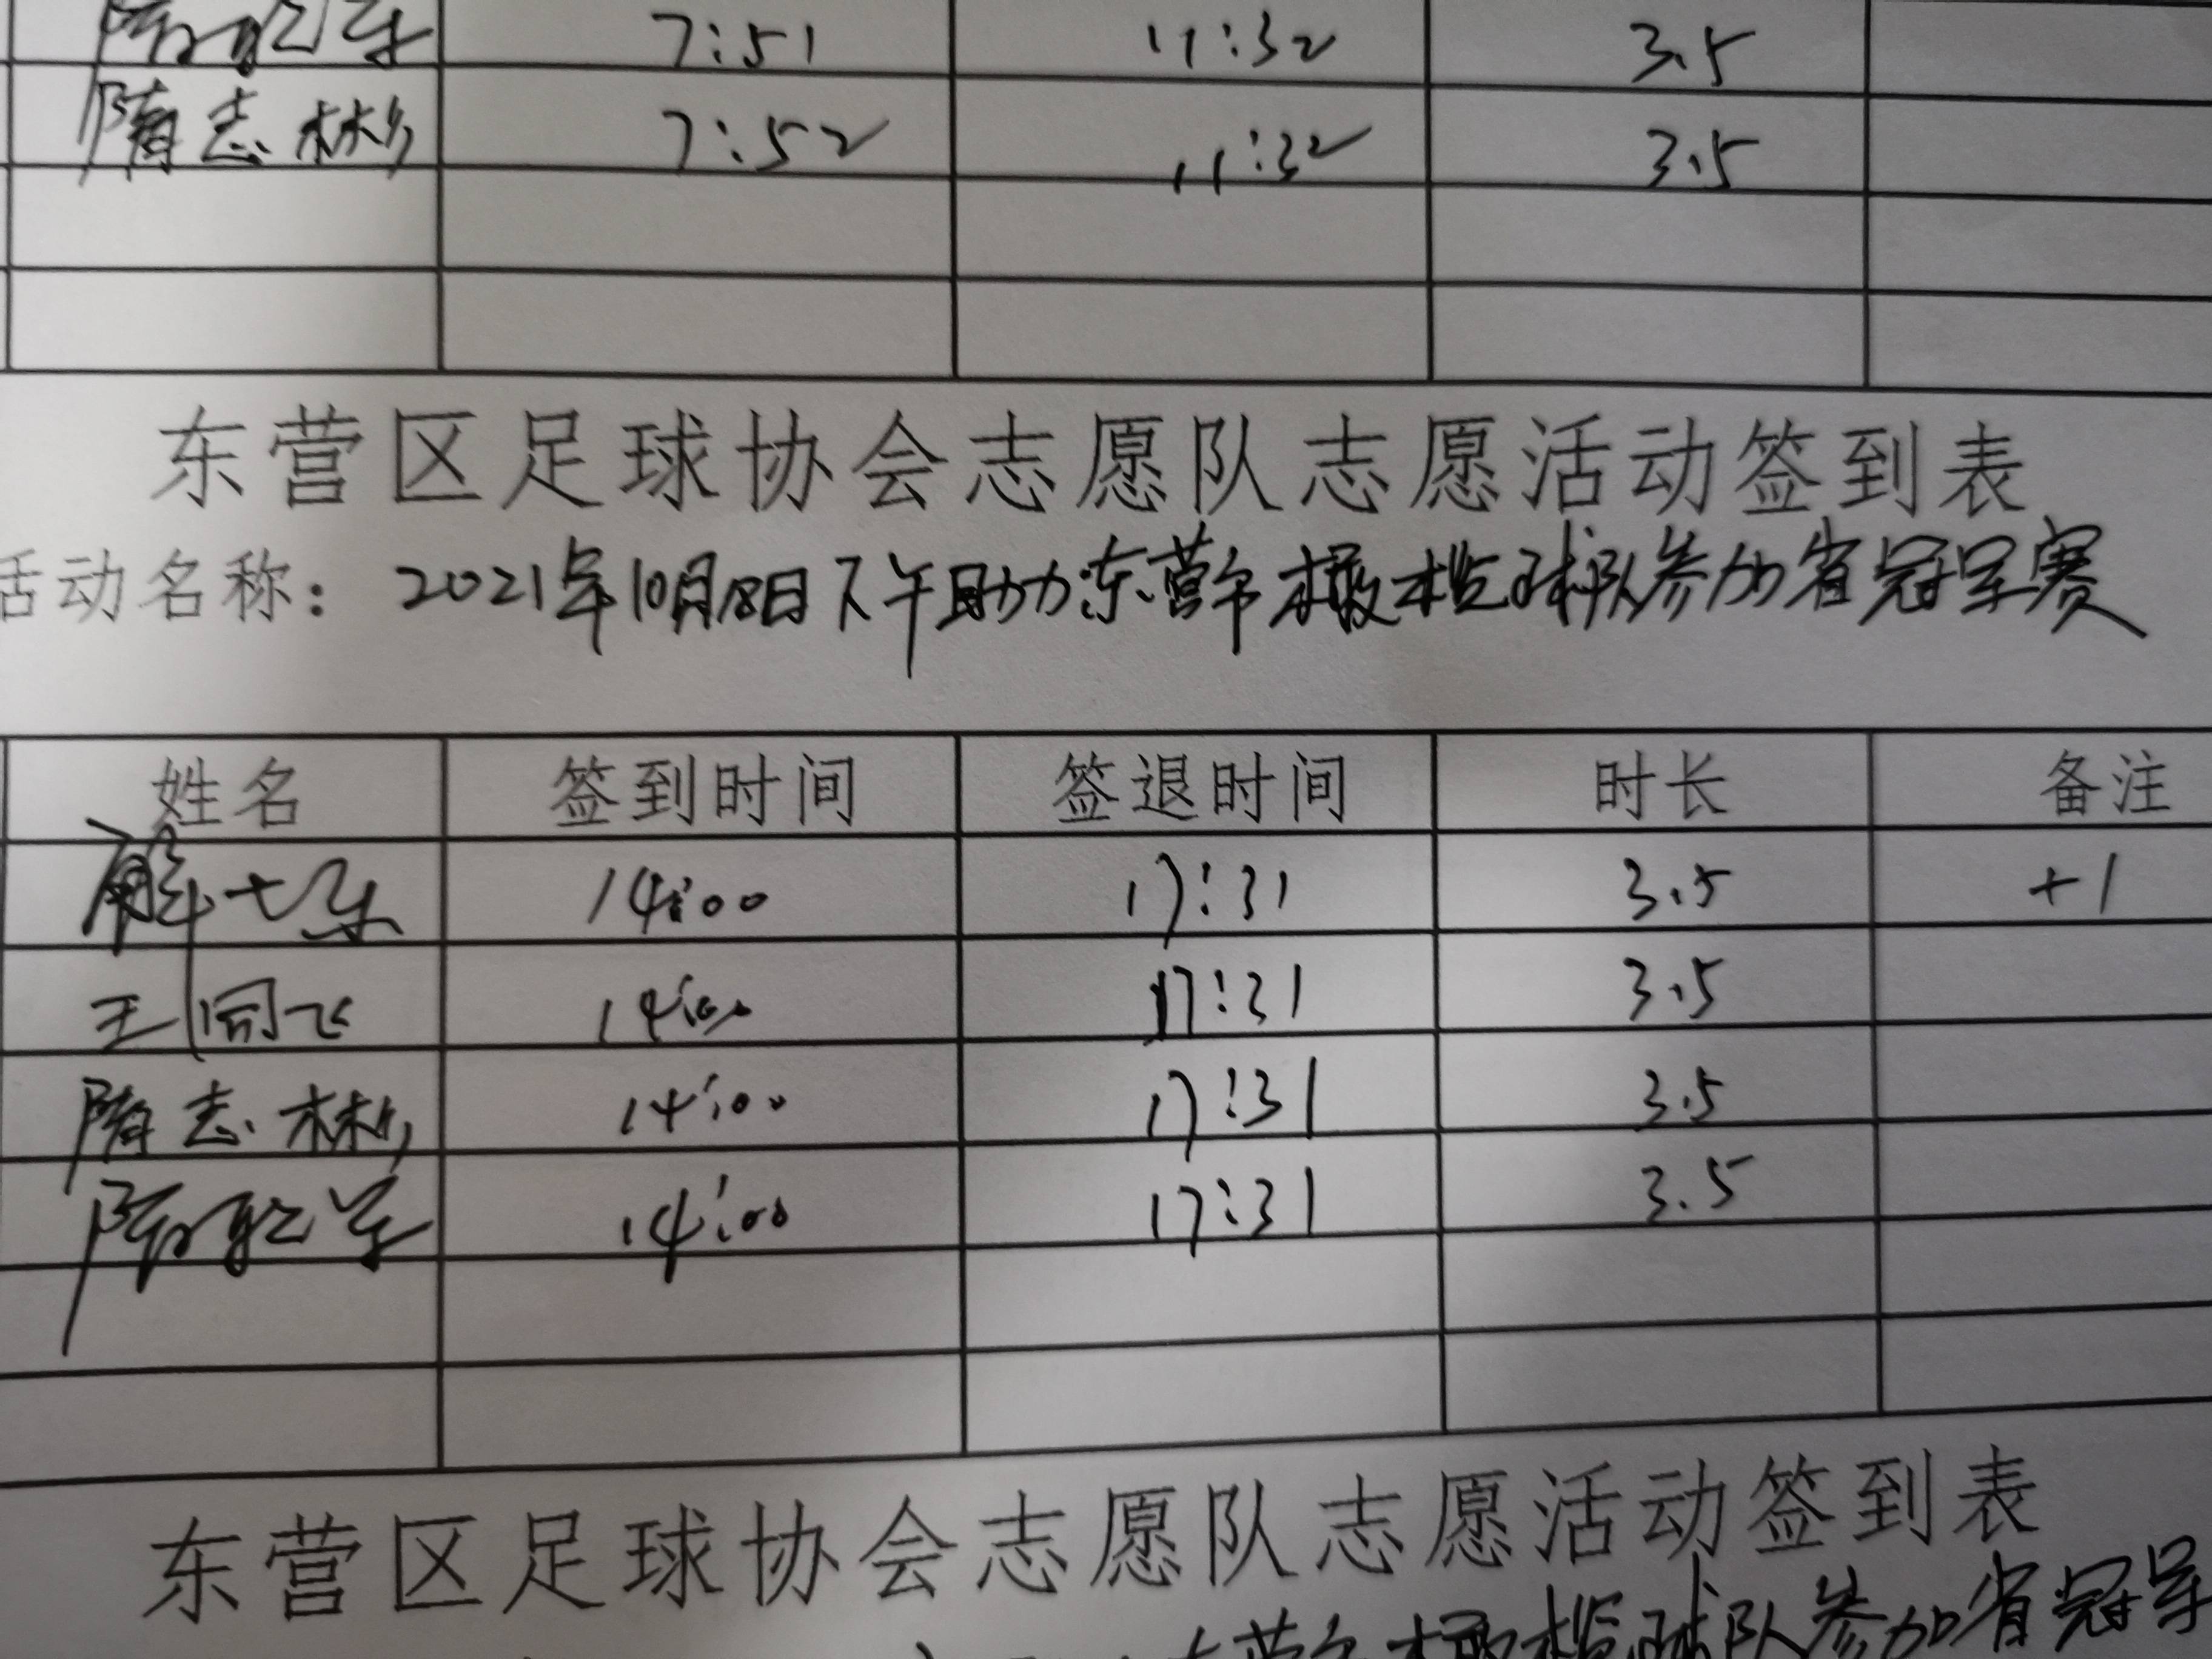 7:51 11:32 3.5
隋志彬 7:52 11:32 3.5
东营区足球协会志愿队志愿活动签到表
活动名称：2021年10月18日下午助力东营市橄榄球队参加省冠军赛
姓名 签到时间 签退时间 时长 备注
14:00 17:31 3.5 +1
王同飞 14:00 17:31 3.5
隋志彬 14:00 17:31 3.5
14:00 17:31 3.5
东营区足球协会志愿队志愿活动签到表
东营市橄榄球队参加省冠军